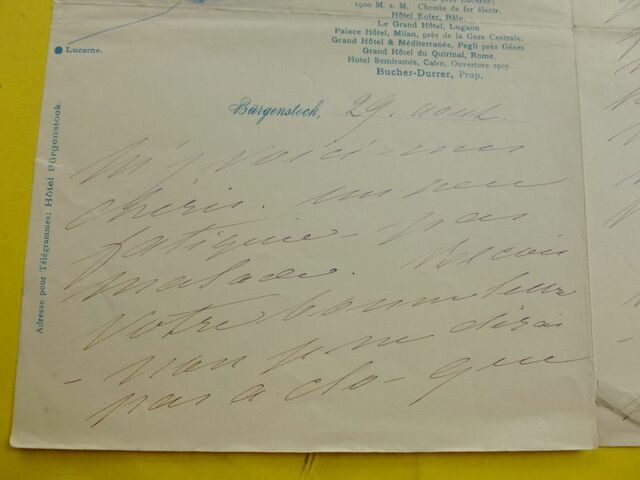 près Lucerne;
1900 M. s. M. Chemin de fer électr.
Hôtel Euler, Bâle.
Le Grand Hôtel, Lugano.
Palace Hôtel, Milan, près de la Gare Centrale.
Grand Hôtel & Méditerranée, Pegli près Gênes
Grand Hôtel du Quirinal, Rome.
Hotel Semiramis, Cairo, Ouverture 1907.
Bucher-Durrer, Prop.
Lucerne.
Adresse pour Télégrammes: Hôtel Bürgenstock.
Bürgenstock, 29. aout.
M'y voici mes
chéris. un peu
fatiguée - pas
malade. Reçois
votre bonne lettre
- non je ne dirai
pas à Clo - que